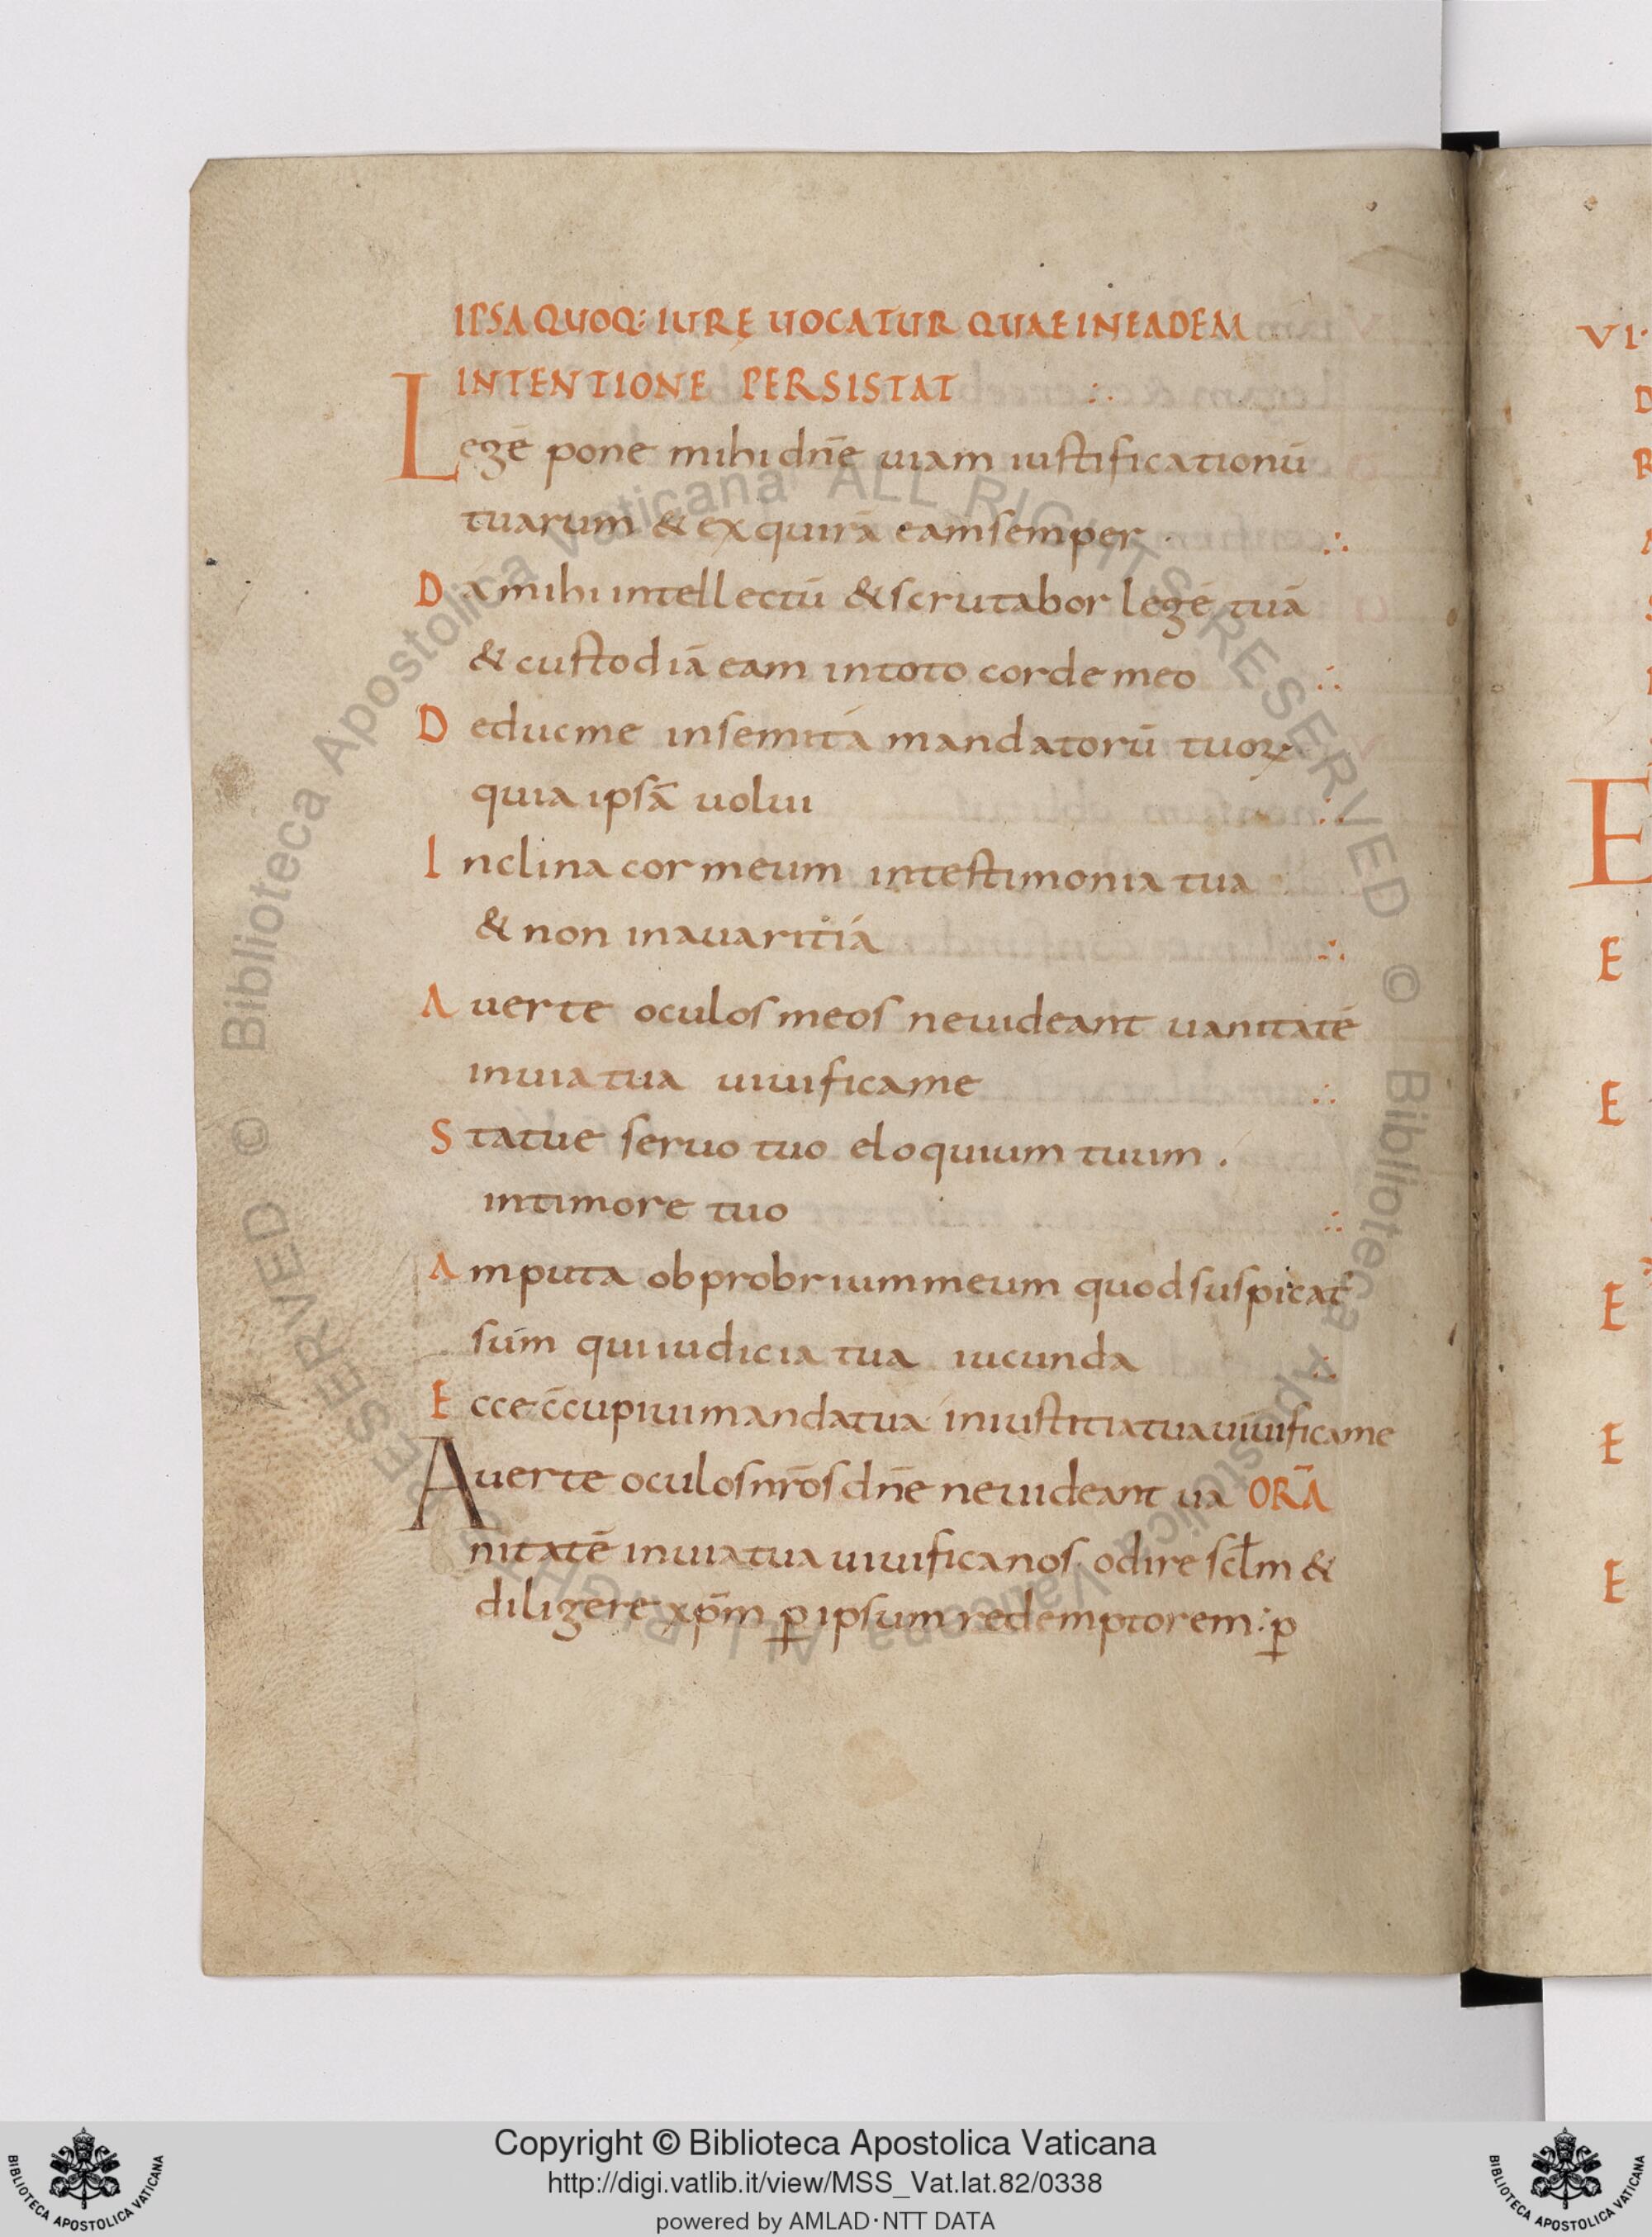 IPSA QUOQ: IURE UOCATUR QUAE IN EADEM
INTENTIONE PERSISTAT ∴
Legē pone mihi dn̄e uiam iustificationū
tuarum & exquirā eam semper . ∴
Da mihi intellectū & scrutabor legē tuā
& custodiā eam in toto corde meo ∴
Deduc me in semitā mandatorū tuoꝝ
quia ipsā uolui ∴
Inclina cor meum in testimonia tua
& non in auaritiā ∴
Auerte oculos meos ne uideant uanitatē
in uia tua uiuifica me ∴
Statue seruo tuo eloquium tuum .
in timore tuo ∴
Amputa obprobrium meum quod suspicat
sum qui iudicia tua iucunda ∴
Ecce c̄cupiui mandata tua in iustitia tua uiuifica me
Auerte oculos nr̄os dn̄e ne uideant ua ORĀ
nitatē in uia tua uiuifica nos. odire scl̄m &
diligere xp̄m ꝑ ipsum redemptorem : ꝑ
VI·
D
R
E
E
E
E
E
E
© Biblioteca Apostolica Vaticana ALL RIGHTS RESERVED © Biblioteca Apostolica Vaticana ALL RIGHTS RESERVED
BIBLIOTECA APOSTOLICA VATICANA
Copyright © Biblioteca Apostolica Vaticana
http://digi.vatlib.it/view/MSS_Vat.lat.82/0338
powered by AMLAD·NTT DATA
BIBLIOTECA APOSTOLICA VATICANA